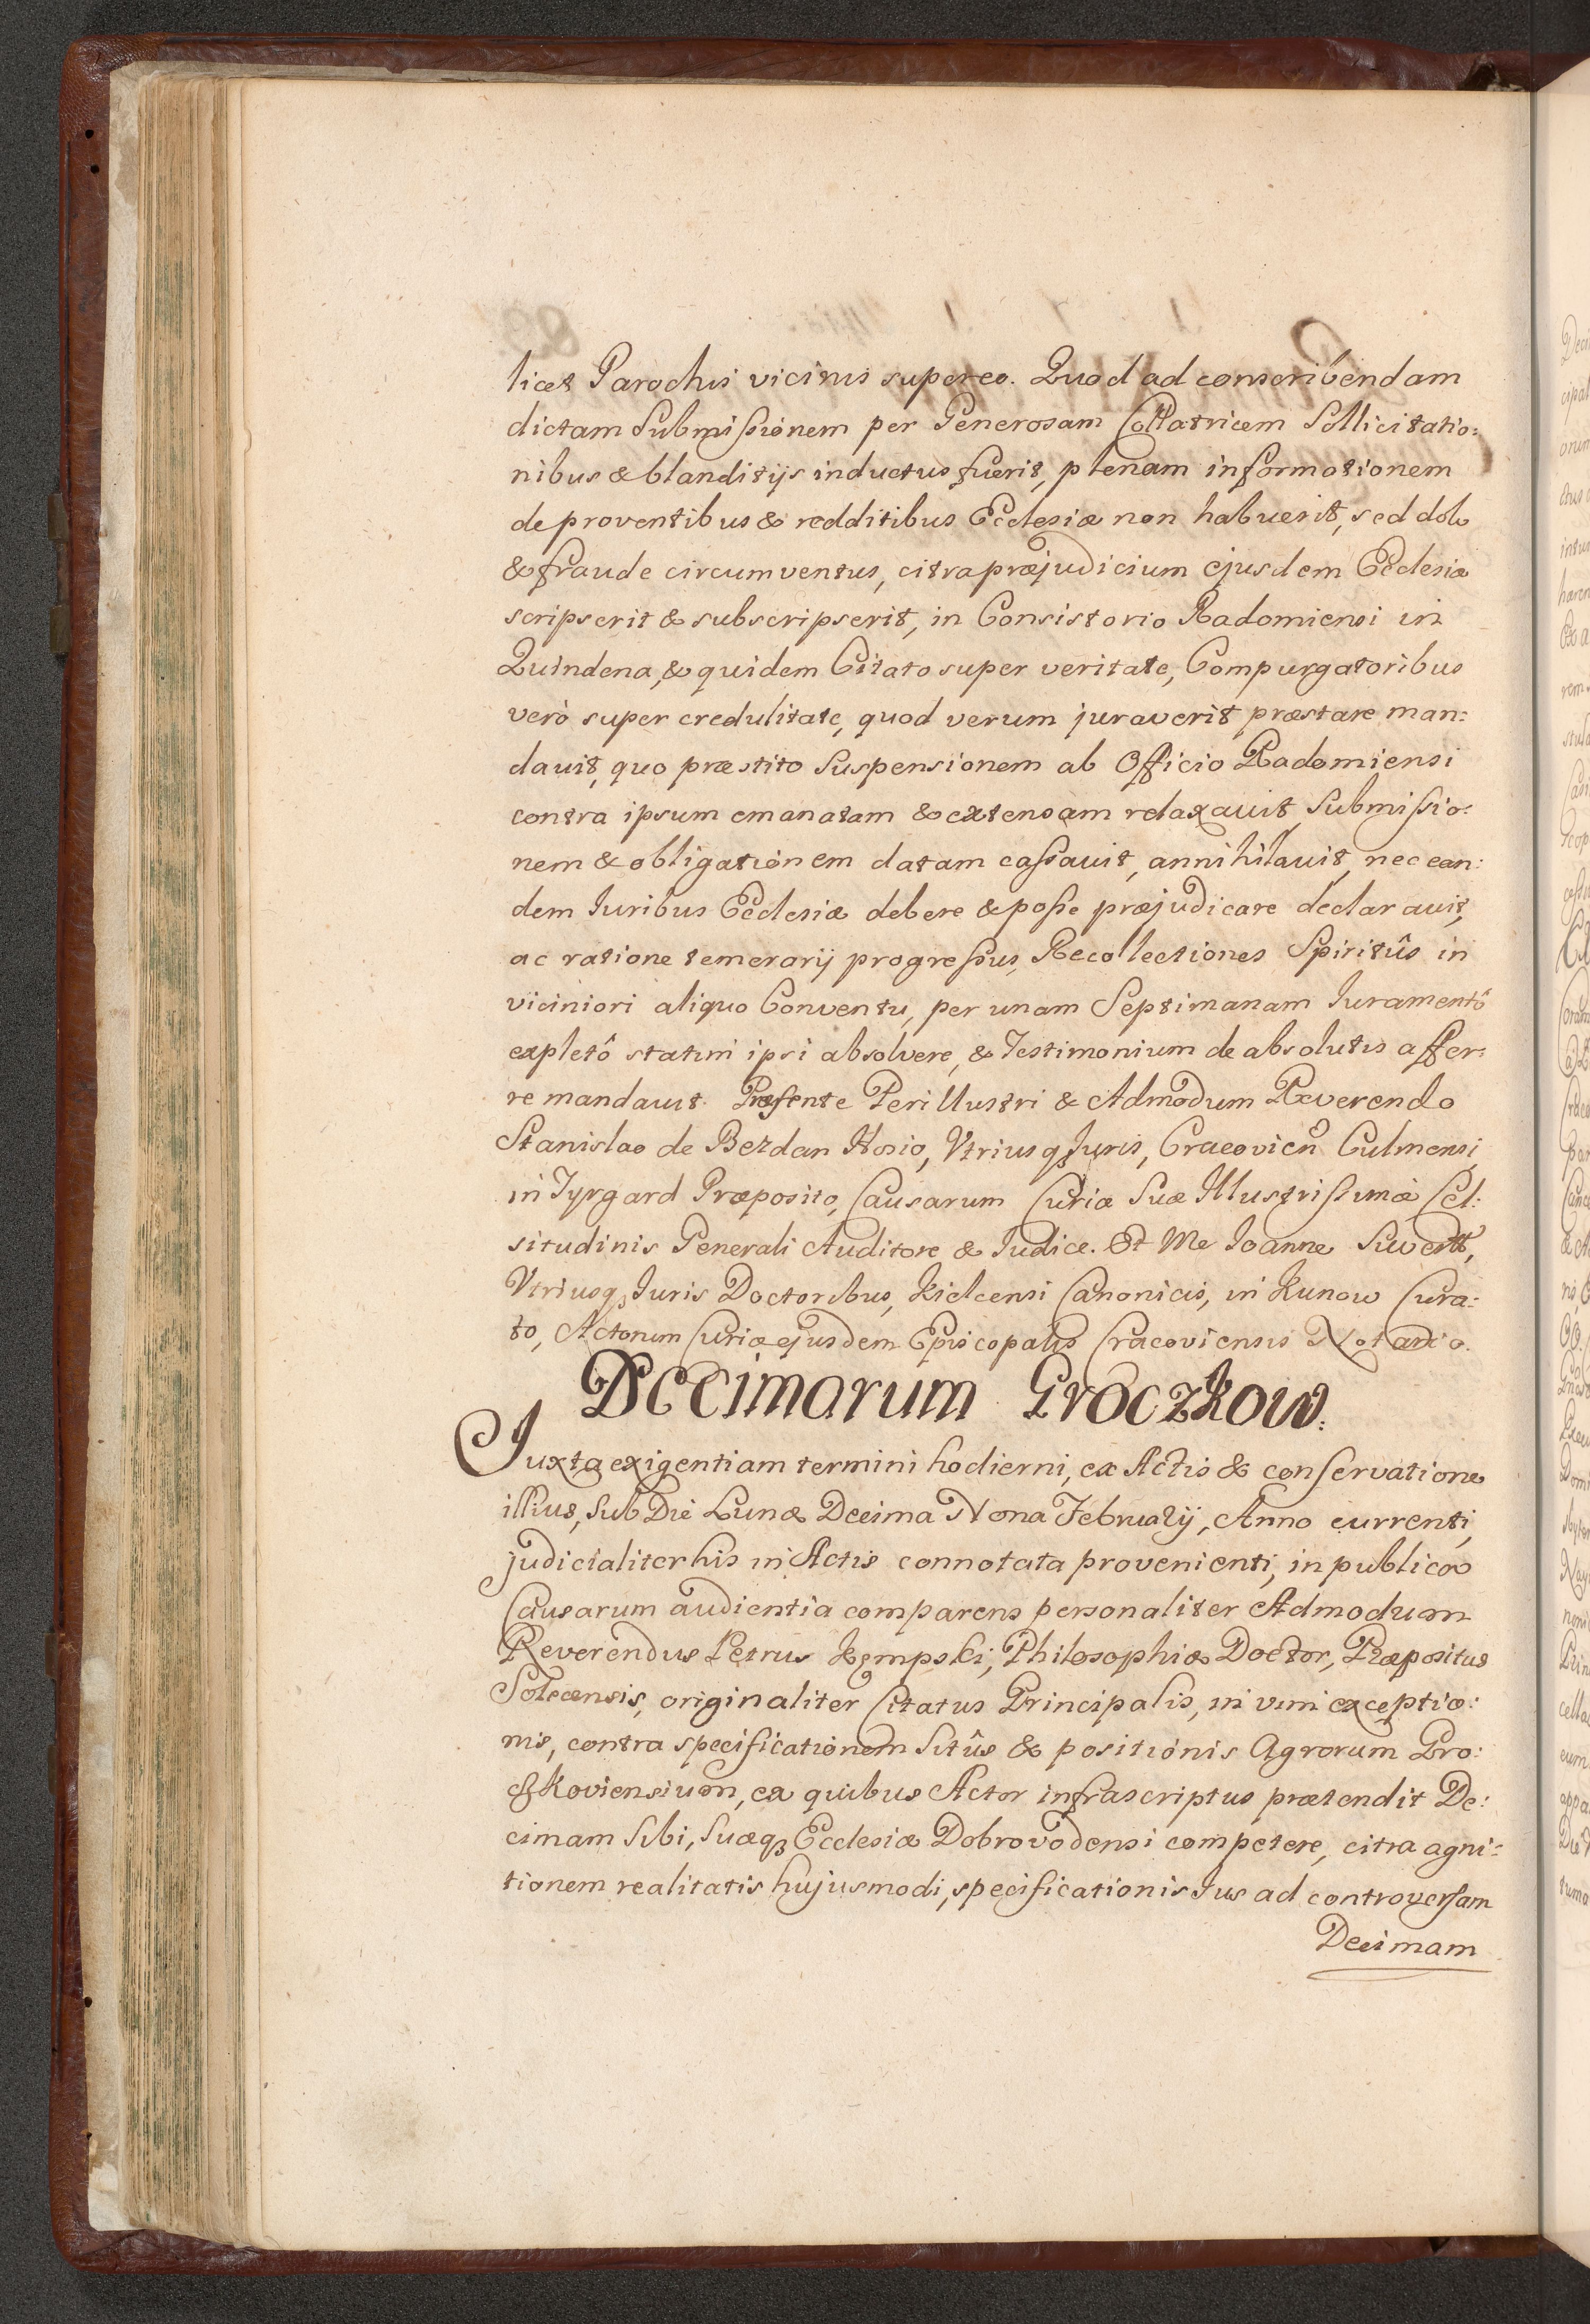 licet Parochis vicinis super eo. Quod ad conscribendam
dictam Submissionem per Generosam Collatricem Sollicitatio:
nibus & blanditijs inductus fuerit, plenam informationem
de proventibus & redditibus Ecclesiæ non habuerit, sed dolo
& fraude circumventus, citra præjudicium ejusdem Ecclesiæ
scripserit & subscripserit, in Consistorio Radomiensi in
Quindena, & quidem Citato super veritate, Compurgatoribus
verò super credulitate, quod verum juraverit præstare man:
davit, quo præstito Suspensionem ab Officio Radomiensi
contra ipsum emanatam & extensam relaxavit, Submissio:
nem & obligationem datam cassavit, annihilavit, nec ean:
dem Juribus Ecclesiæ debere & posse præjudicare declaravit,
ac ratione temerarij progressus, Recollectiones Spiritûs in
viciniori aliquo Conventu, per unam Septimanam Juramentô
expletô statim ipsi absolvere, & Testimonium de absolutis affer:
re mandavit. Præsente Perillustri & Admodum Reverendo
Stanislao de Bezdan Hosio, Vtriusq3 Juris, Cracovien̄ Culmensi,
in Tyrgard Præposito, Causarum Curiæ Suæ Illustrissimæ Cel:
situdinis Generali Auditore & Judice. Et Me Joanne Suwertt,
Vtriusq3 Juris Doctoribus, Kielcensi Canonicis, in Kunow Cura:
to, Actorum Curiæ ejusdem Episcopalis Cracoviensis Notario.
Decimarum Groczkow.
Juxta exigentiam termini hodierni, ex Actis & conservatione
illius, Sub Die Lunæ Decima Nona Februarij, Anno currenti,
judicialiter his in Actis connotata provenienti, in publica
Causarum audientia comparens personaliter Admodum
Reverendus Petrus Kempski, Philosophiæ Doctor, Præpositus
Solecensis, originaliter Citatus Principalis, in vim exceptio:
nis, contra specificationem Sitûs & positionis Agrorum Gro:
czkoviensium, ex quibus Actor infrascriptus prætendit De:
cimam Sibi, Suæq3 Ecclesiæ Dobrovodensi competere, citra agni:
tionem realitatis hujusmodi, specificationis Jus ad controversam
Decimam